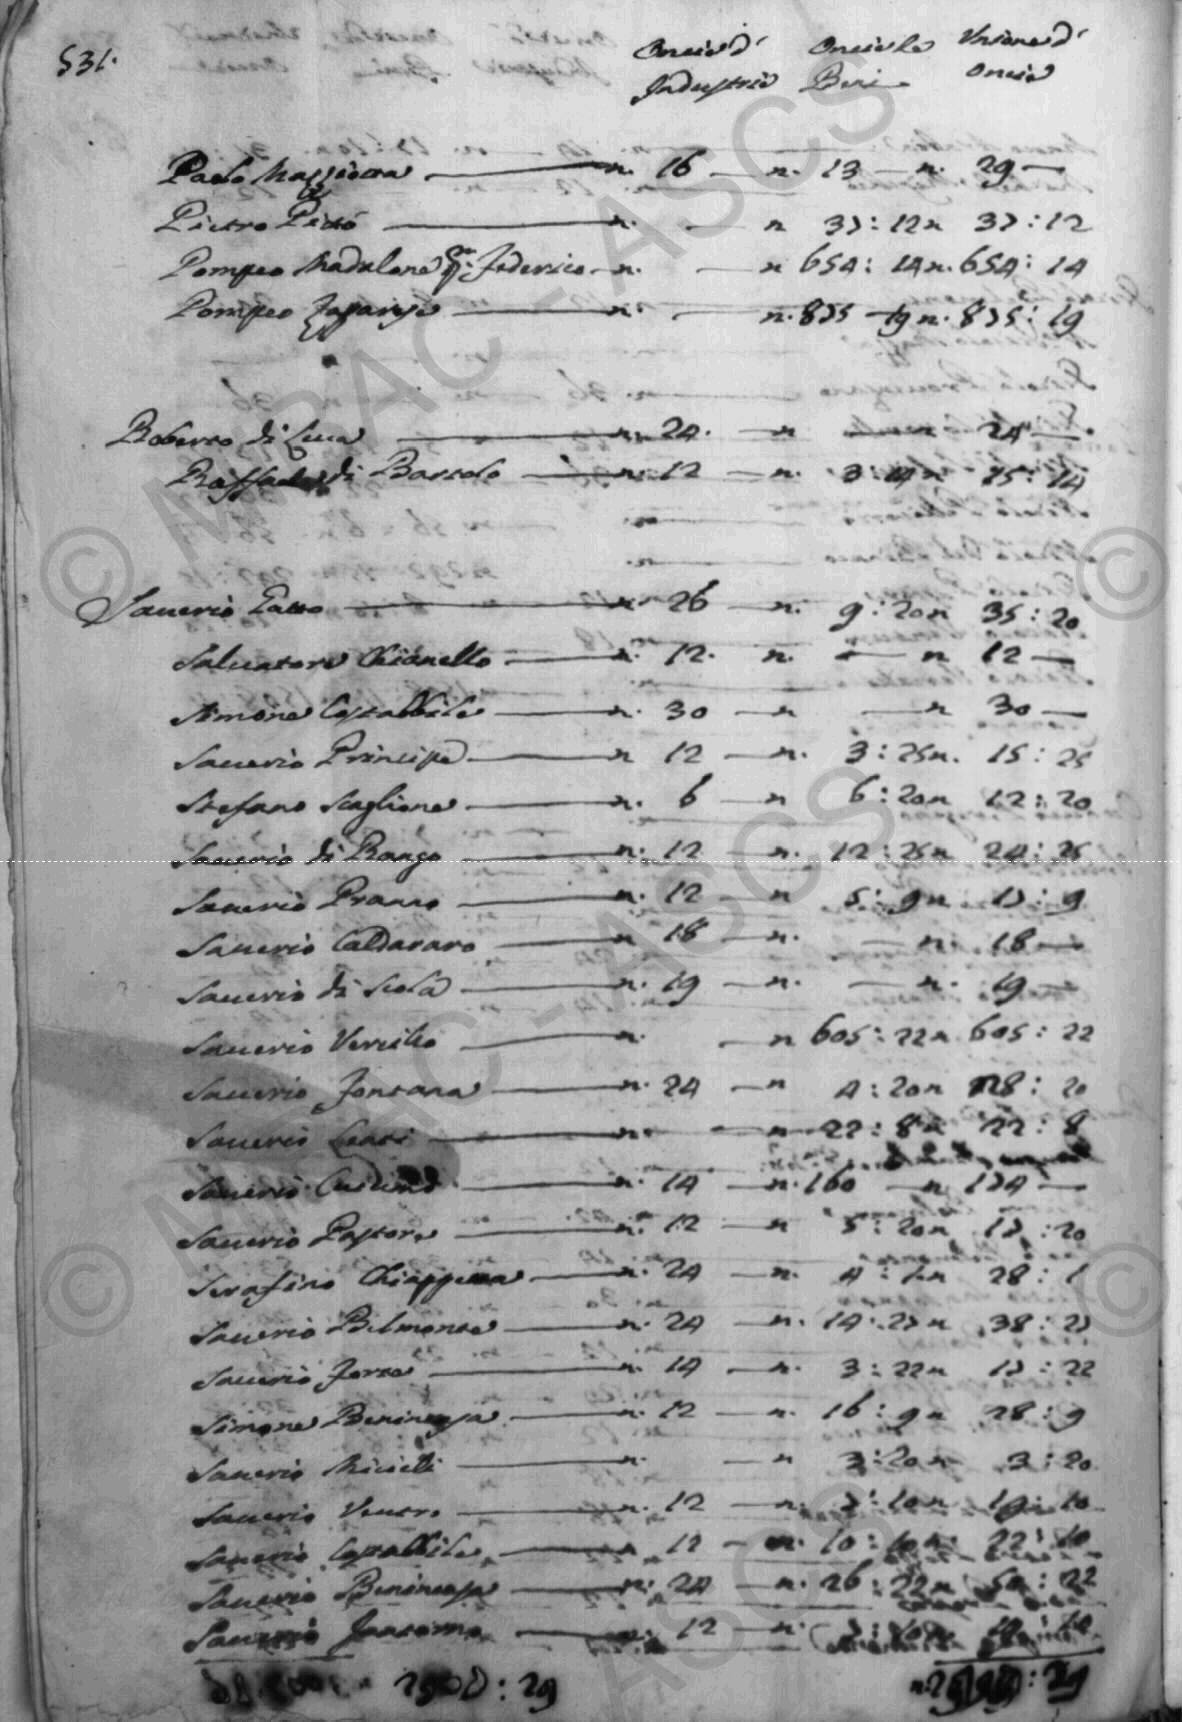 531.
Oncie d' Oncie de Unione d'
Industrie Beni oncie
Paolo Mazziotta n. 16 — n. 13 — n. 29 —
Pietro n. — n 37 : 12 n 37 : 12
Pompeo Madalone Federico n. — n 654 : 14 n. 654 : 14
Pompeo n. — n. 875 — 19 n. 875 : 19
Roberto di Luca n. 24. — n — n 24 —
Raffaele di Bartolo n. 12 — n. 3 : 14 n 15 : 14
Saverio Gatto n. 26 — n. 9 : 20 n 35 : 20
Salvatore Chianello n. 12. n. — n 12 —
Simone Costabbile n. 30 — n — n 30 —
Saverio Principe n 12 — n. 3 : 25 n. 15 : 25
Stefano Scaglione n. 6 — n 6 : 20 n 12 : 20
Saverio di Rango n. 12 — n. 12 : 25 n 24 : 25
Saverio n. 12 — n 5 : 9 n 17 : 9
Saverio Caldararo n 18 — n. — n. 18 —
Saverio di Scola n. 19 — n. — n. 19 —
Saverio n. — n 605 : 22 n 605 : 22
Saverio Fontana n. 24 — n 4 : 20 n 28 : 20
Saverio n. — n 22 : 8 n 22 : 8
Saverio n. 14 — n. 160 — n 174 —
Saverio Pastore n. 12 — n 5 : 20 n 17 : 20
Serafino Chiappetta n. 24 — n. 4 : 1 n 28 : 1
Saverio Belmonte n. 24 — n. 14 : 27 n 38 : 27
Saverio Forte n. 14 — n. 3 : 22 n 17 : 22
Simone Benincasa n. 12 — n. 16 : 9 n 28 : 9
Saverio Miceli n. — n 3 : 20 n 3 : 20
Saverio n. 12 — n. 7 : 10 n 19 : 10
Saverio Costabbile n 12 — n. 10 : 10 n. 22 : 10
Saverio Benincasa n. 24 — n. 26 : 22 n 50 : 22
Saverio n. 12 — n. 7 : 10 n 19 : 10
: 29 : 29
© MPAC - ASCS ©
© MPAC - ASCS ©
ASCS